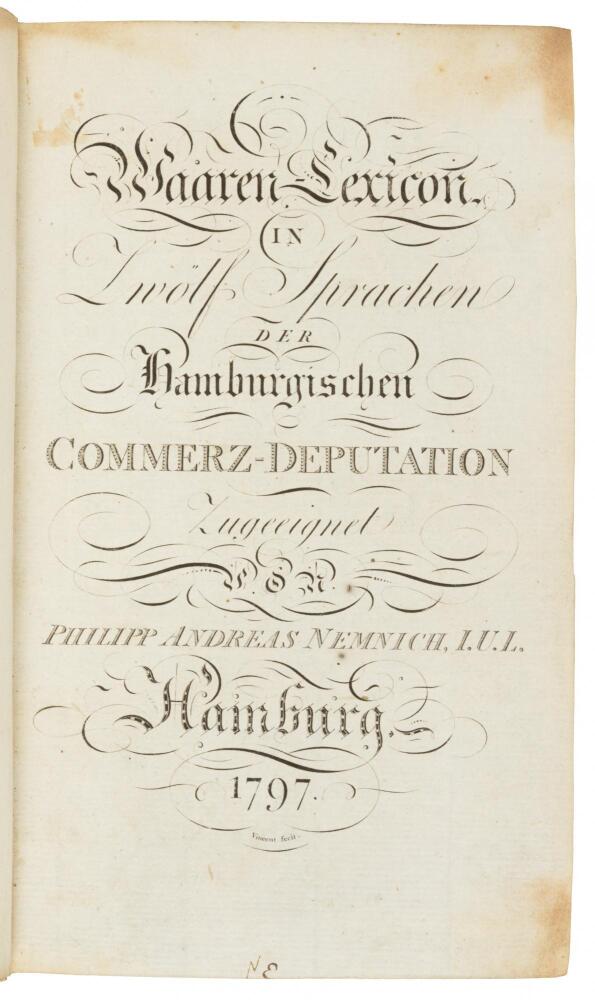 Waaren-Lexicon.
IN
Zwölf Sprachen
DER
Hamburgischen
COMMERZ-DEPUTATION
Zugeeignet
VON
PHILIPP ANDREAS NEMNICH, I.U.L.
Hamburg.
1797.
Vincent fecit.